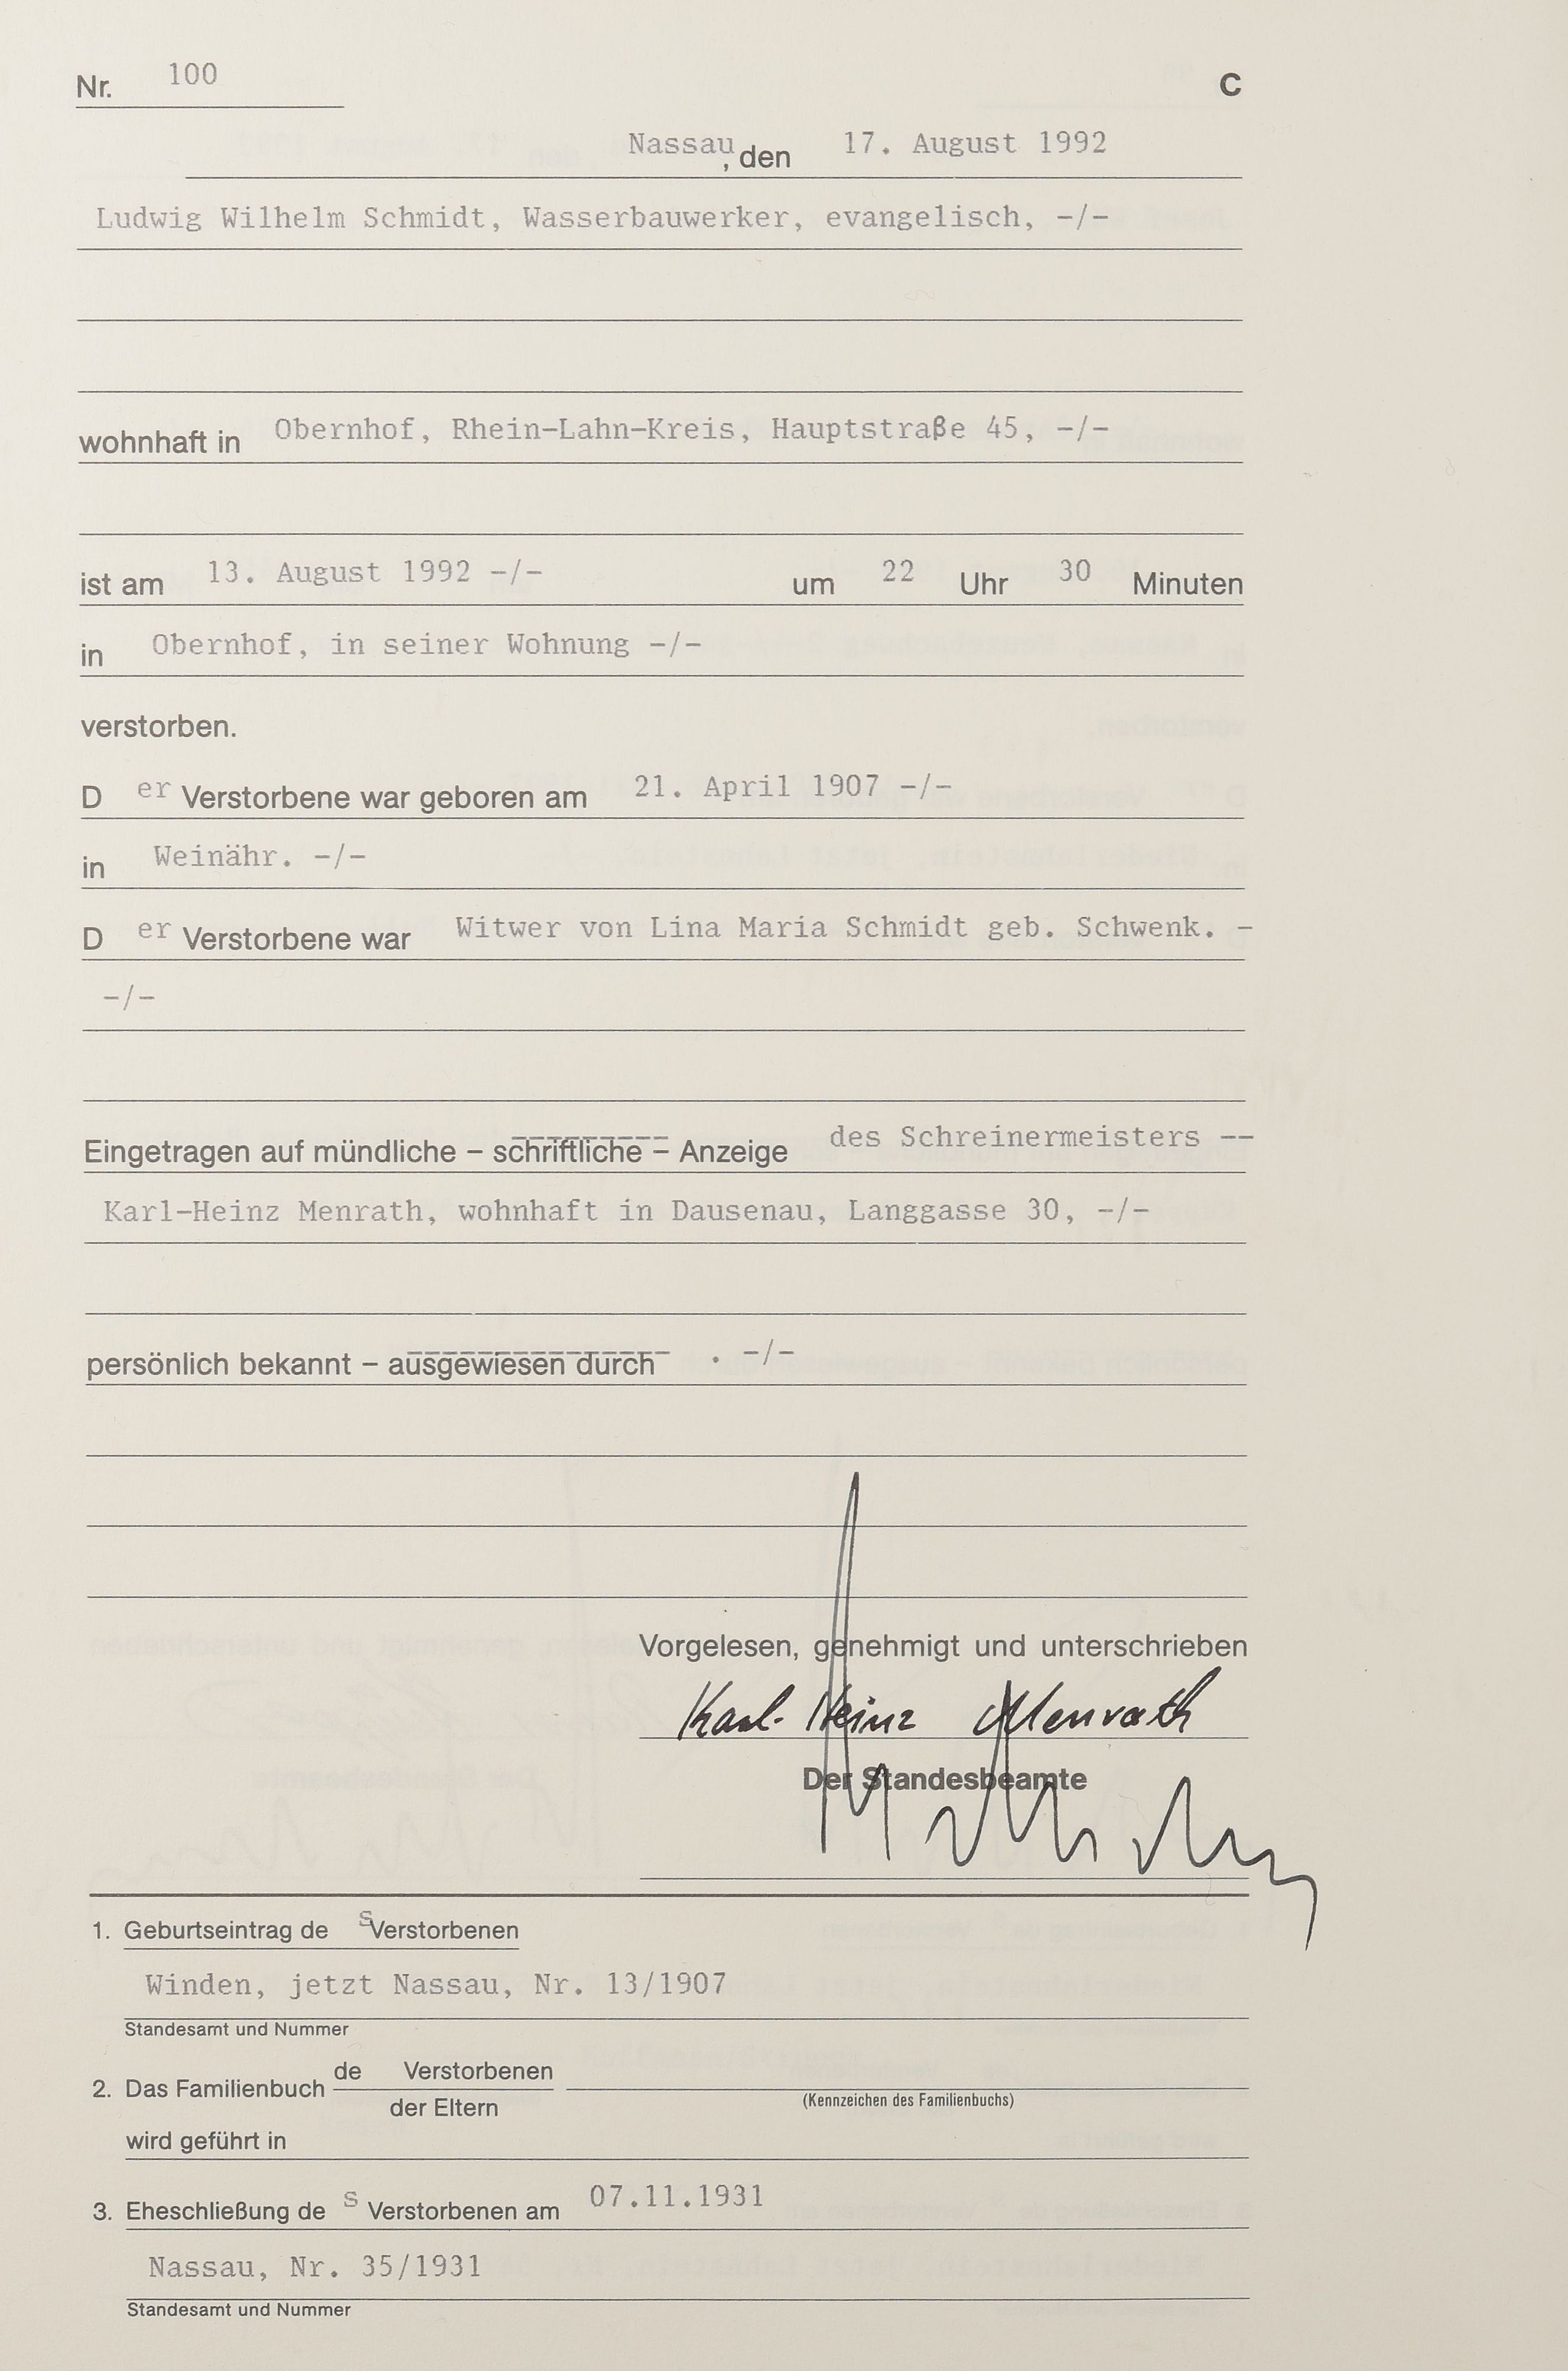 Nr. 100 C
Nassau, den 17. August 1992
Ludwig Wilhelm Schmidt, Wasserbauwerker, evangelisch, -/-
wohnhaft in Obernhof, Rhein-Lahn-Kreis, Hauptstraße 45, -/-
ist am 13. August 1992 -/- um 22 Uhr 30 Minuten
in Obernhof, in seiner Wohnung -/-
verstorben.
D er Verstorbene war geboren am 21. April 1907 -/-
in Weinähr. -/-
D er Verstorbene war Witwer von Lina Maria Schmidt geb. Schwenk. -
-/-
Eingetragen auf mündliche – schriftliche – Anzeige des Schreinermeisters --
Karl-Heinz Menrath, wohnhaft in Dausenau, Langgasse 30, -/-
persönlich bekannt – ausgewiesen durch . -/-
Vorgelesen, genehmigt und unterschrieben
Karl-Heinz Menrath
Der Standesbeamte
1. Geburtseintrag de s Verstorbenen
Winden, jetzt Nassau, Nr. 13/1907
Standesamt und Nummer
de Verstorbenen
2. Das Familienbuch
(Kennzeichen des Familienbuchs)
der Eltern
wird geführt in
3. Eheschließung de s Verstorbenen am 07.11.1931
Nassau, Nr. 35/1931
Standesamt und Nummer